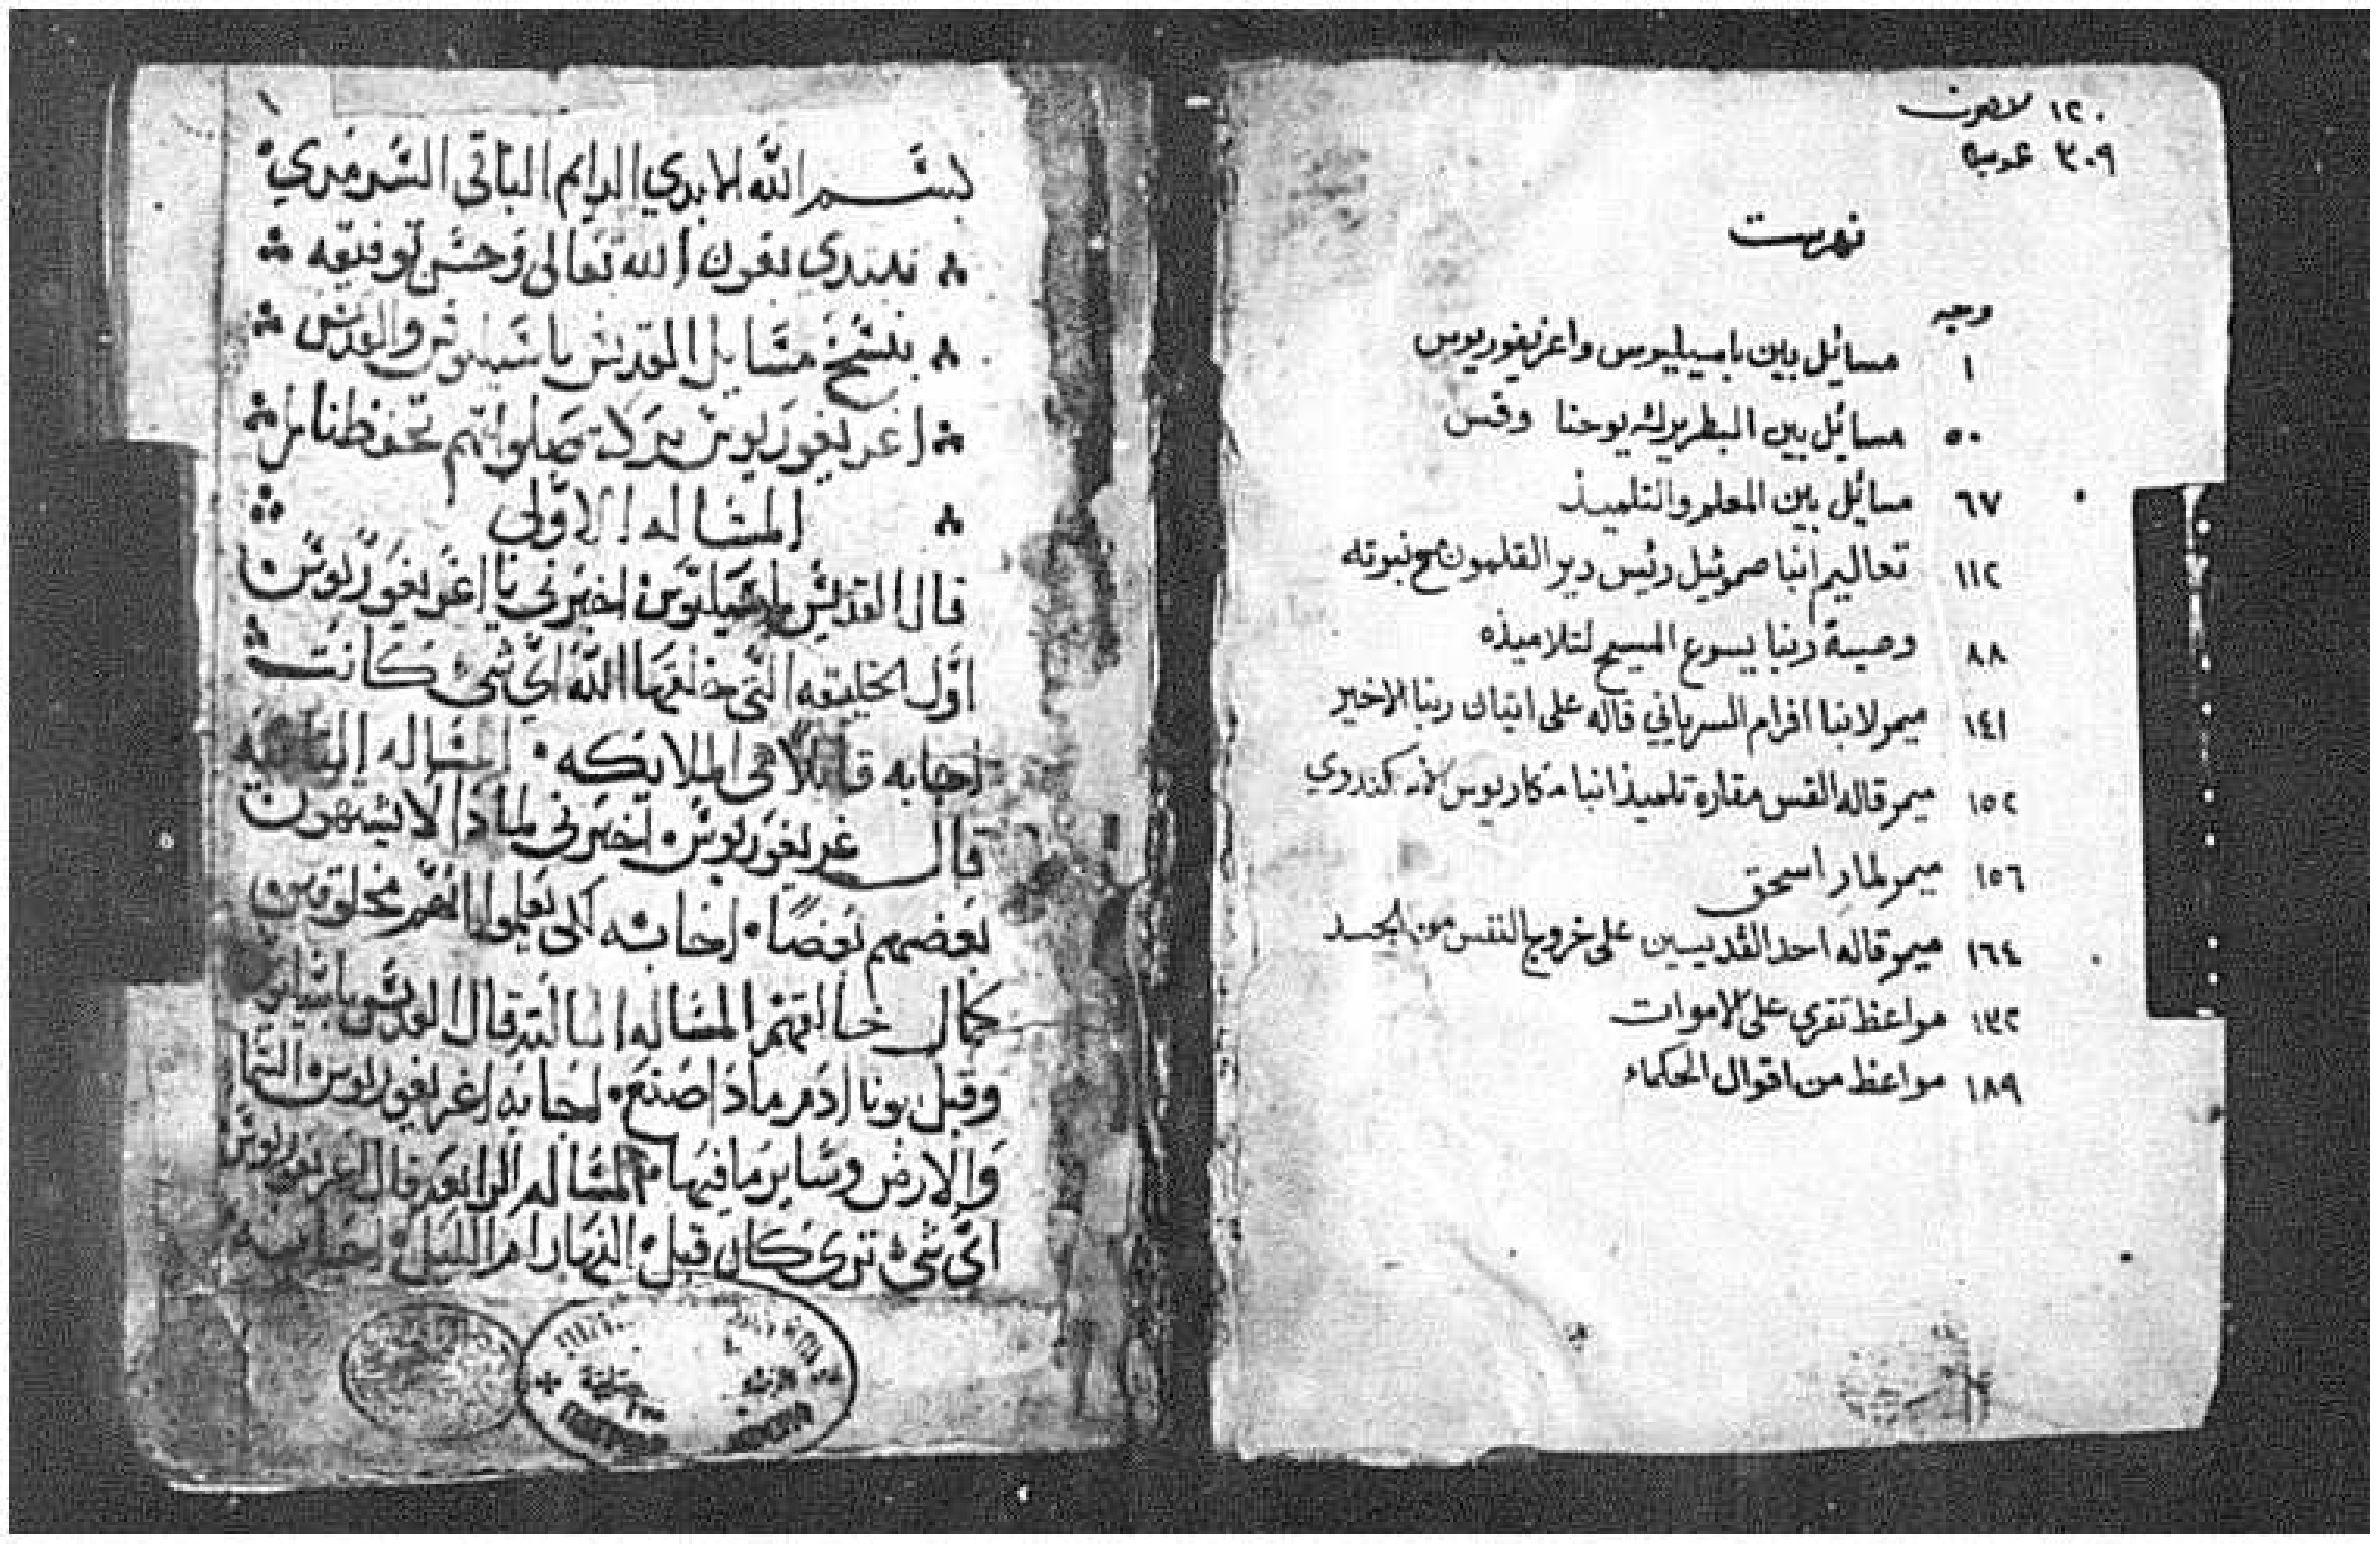 ١٢٠ لاهوت
٣٠٩ عربي
فهرست
وجه
١ مسائل بين باسيليوس واغريغوريوس
٥٠ مسائل بين البطريرك يوحنا وقس
٦٧ مسائل بين المعلم والتلميذ
١١٢ تعاليم انبا صموئيل رئيس دير القلمون مع نبوته
٨٨ وصية ربنا يسوع المسيح لتلاميذه
١٤١ ميمر لانبا افرام السرياني قاله على اتيان ربنا الاخير
١٥٢ ميمر قاله القس مقاره تلميذ انبا مكاريوس
١٥٦ ميمر لمار اسحق
١٦٤ ميمر قاله احد القديسين على خروج النفس من الجسد
١٣٢ مواعظ تقرى على الاموات
١٨٩ مواعظ من اقوال الحكماء
بسم الله الابدي الدايم الباقي السرمدي
نبتدي بعون الله تعالى وحسن توفيقه
بنسخ مسايل القديس باسيليوس والقديس
اغريغوريوس بركة صلواتهم تحفظنا امين
المساله الاولى
قال القديس باسيليوس اخبرني يا اغريغوريوس
اول الخليقه التي خلقها الله اي شي كانت
اجابه قايلا هي الملايكه المساله الثانيه
قال غريغوريوس اخبرني لماذا لا يشبهون
بعضهم بعضا اجابه لكي يعلموا انهم مخلوقين
كمال خالقهم المساله الثالثه قال القديس باسيليوس
وقبل بونا ادم ماذا صنع اجابه اغريغوريوس السما
والارض وساير ما فيها المساله الرابعه قال اغريغوريوس
اي شي ترى كان قبل النهار ام الليل اجابه